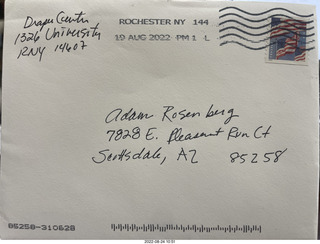 Draper Center
1326 University
RNY 14607
ROCHESTER NY 144
19 AUG 2022 PM 1 L
Adam Rosenberg
7828 E. Pleasant Run Ct
Scottsdale, AZ 85258
85258-310628
2022-08-24 10:51